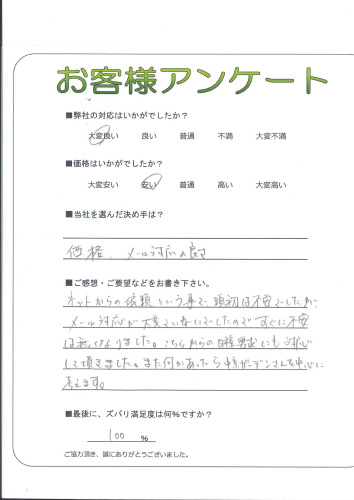 お客様アンケート
■弊社の対応はいかがでしたか？
大変良い 良い 普通 不満 大変不満
■価格はいかがでしたか？
大変安い 安い 普通 高い 大変高い
■当社を選んだ決め手は？
価格、メール対応の良さ
■ご感想・ご要望などをお書き下さい。
ネットからの依頼という事で、最初は不安でしたが、
メール対応が大変ていねいでしたのですぐに不安
は無くなりました。こちらからの日程要求にも対応
して頂きました。また何かあったら ガーデンさんを中心に
考えます。
■最後に、ズバリ満足度は何％ですか？
100 ％
ご協力頂き、誠にありがとうございました。